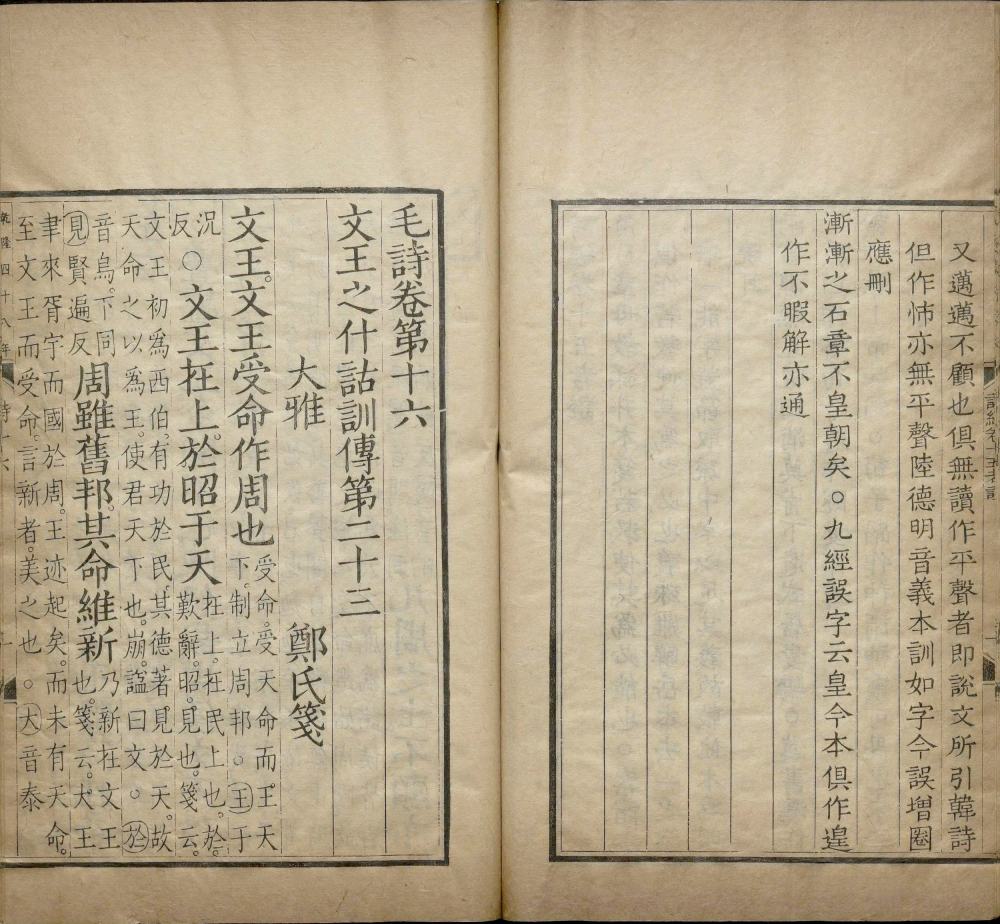 又邁邁不顧也俱無讀作平聲者即說文所引韓詩
但作怖亦無平聲陸德明音義本訓如字今誤增圈
應刪
漸漸之石章不皇朝矣○九經誤字云皇今本俱作遑
作不暇解亦通
毛詩卷第十六
文王之什詁訓傳第二十三
大雅 鄭氏箋
文王。文王受命作周也
受命。受天命而王天
下。制立周邦。○王于
況
反○
文王在上。於昭于天
在上。在民上也。於。
歎辭。昭。見也。箋云。
文王初為西伯。有功於民。其德著見於天。故
天命之以為王。使君天下也。崩。謚曰文。○於
音烏。下同
見賢遍反
周雖舊邦。其命維新
乃新在文王
也。箋云。大王
聿來胥宇而國於周。王迹起矣。而未有天命。
至文王而受命。言新者。美之也。○大音泰
乾隆四十八年
詩十六